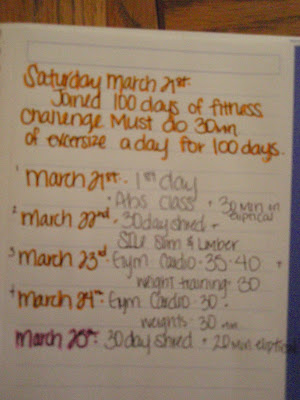 Saturday March 21st.
Joined 100 days of fitness
challenge Must do 30min
of excersize a day for 100 days.
1 March 21st. 1st day
· Abs class + 30 min on
eliptical
2 March 22nd - 30 day shred +
Slim & Limber
3 March 23rd - Gym Cardio · 35-40 +
weight training · 30
4 March 24th - Gym Cardio 30 -
weights · 30 min
March 25th: 30 day shred + 20 min eliptical